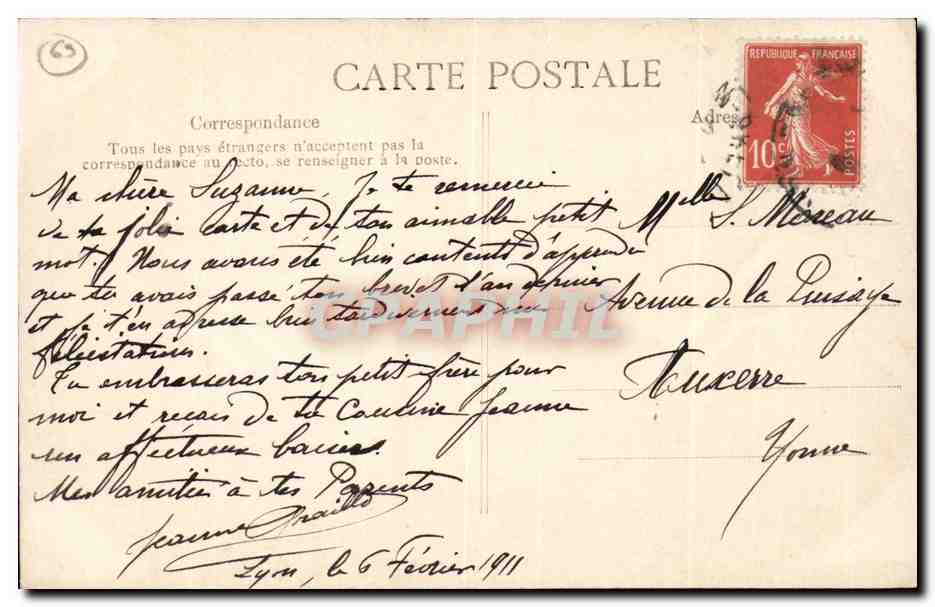 63
CARTE POSTALE
REPUBLIQUE FRANÇAISE
10c
POSTES
Correspondance
Adres
Tous les pays étrangers n'acceptent pas la
correspondance au recto, se renseigner à la poste.
Ma chère Suzanne, Je te remercie
de ta jolie carte et de ton aimable petit
mot. Nous avons été bien contents d'apprendre
que tu avais passé ton brevet l'an dernier
et je t'en adresse bien tardivement mes
félicitations.
Tu embrasseras ton petit frère pour
moi et reçois de ta Cousine Jeanne
un affectueux baiser.
Mes amitiés à tes Parents
Jeanne
Lyon, le 6 Février 1911
Melle S. Moreau
Avenue de la Puisaye
Auxerre
Yonne
CPAPHIL